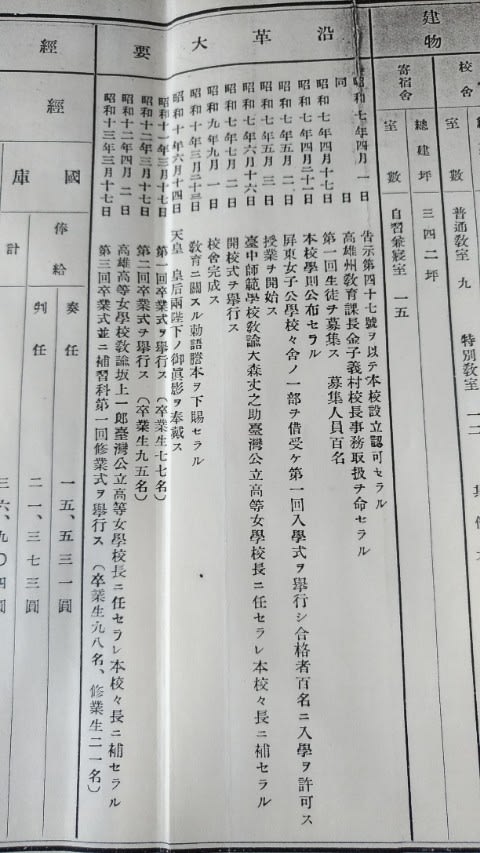 建物
校舎
室數
普通教室 九
特別教室 一二
寄宿舍
總建坪 三四二坪
室數 自習兼寢室 一五
沿革大要
昭和七年四月一日 告示第四十七號ヲ以テ本校設立認可セラル
同日 高雄州教育課長金子義村校長事務取扱ヲ命セラル
昭和七年四月十七日 第一回生徒ヲ募集ス 募集人員百名
昭和七年四月二十一日 本校學則公布セラル
昭和七年五月二日 屏東女子公學校々舍ノ一部ヲ借受ケ第一回入學式ヲ舉行シ合格者百名ニ入學ヲ許可ス
昭和七年五月三日 授業ヲ開始ス
昭和七年六月十六日 臺中師範學校敎諭大森丈之助臺灣公立高等女學校長ニ任セラレ本校々長ニ補セラル
昭和七年七月二日 開校式ヲ舉行ス
昭和九年九月一日 校舍完成ス
昭和十年三月二十三日 敎育ニ關スル勅語謄本ヲ下賜セラル
昭和十年六月十四日 天皇 皇后兩陛下ノ御眞影ヲ奉戴ス
昭和十一年三月十七日 第一回卒業式ヲ舉行ス (卒業生七七名)
昭和十二年三月十七日 第二回卒業式ヲ舉行ス (卒業生九五名)
昭和十二年四月二日 高雄高等女學校敎諭坂上一郎臺灣公立高等女學校長ニ任セラレ本校々長ニ補セラル
昭和十三年三月十七日 第三回卒業式並ニ補習科第一回修業式ヲ舉行ス (卒業生九八名、修業生二一名)
經
經
國庫
俸給
奏任 一五、五三一圓
判任 二一、三七三圓
計 三六、九〇四圓